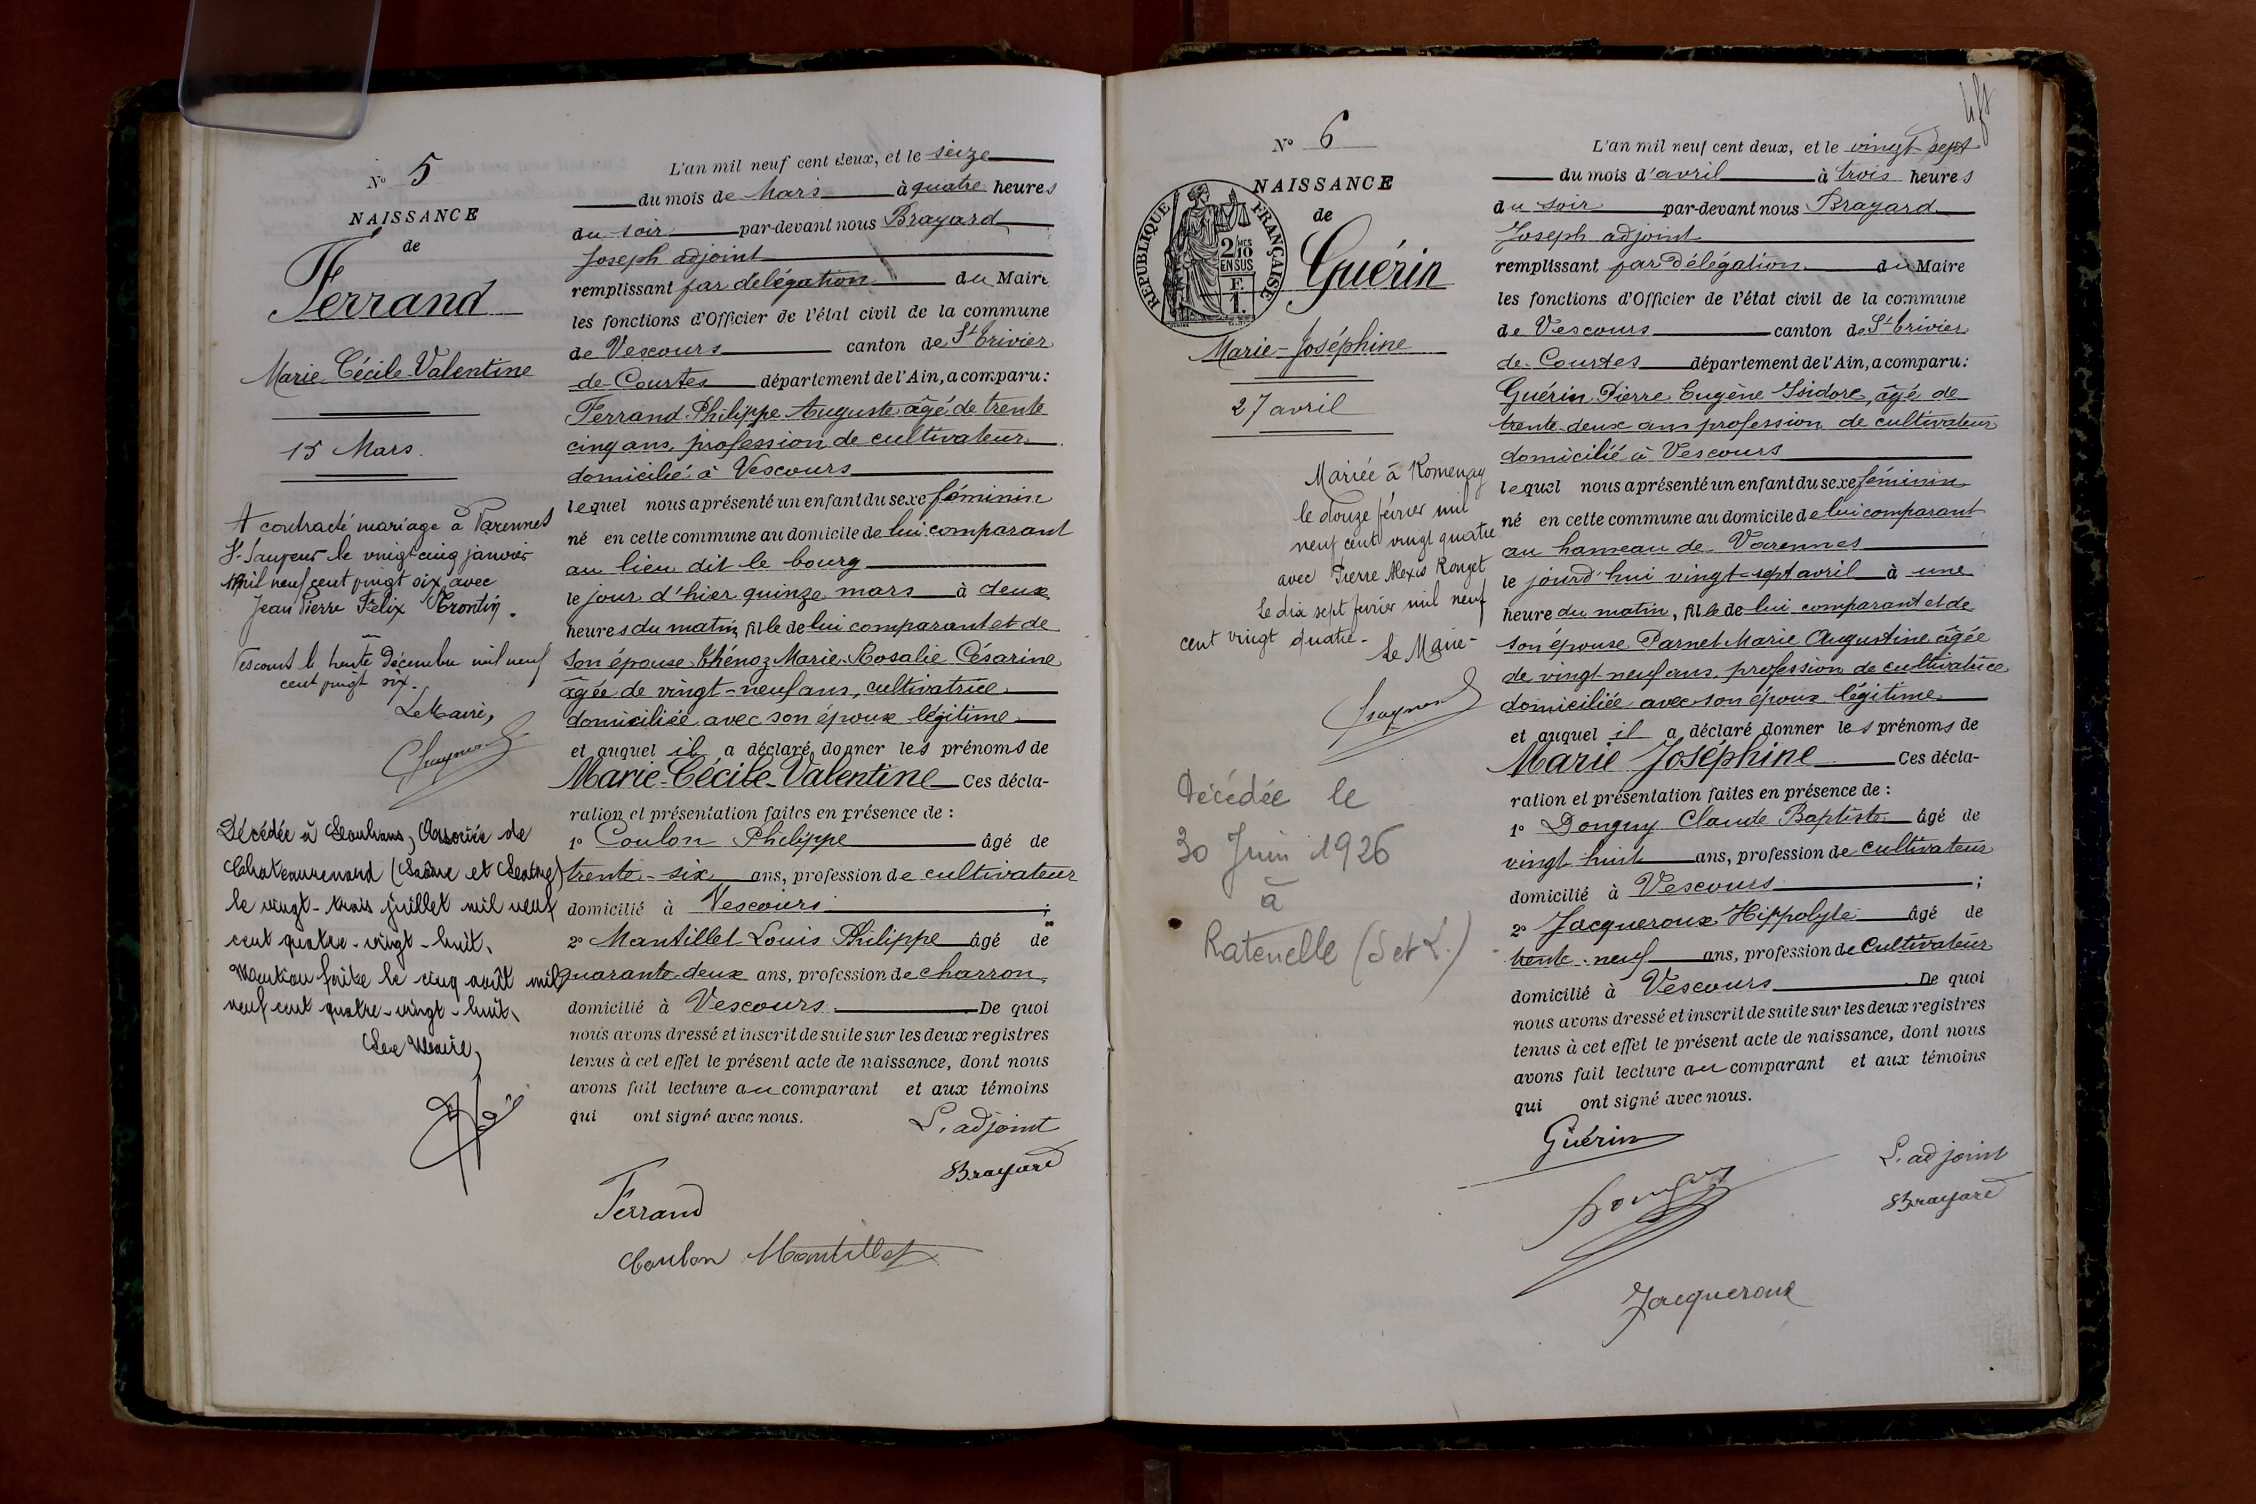 N° 5
NAISSANCE
de
Ferrand
Marie Cécile Valentine
15 Mars.
A contracté mariage à Varennes
St Sauveur le vingt cinq janvier
mil neuf cent vingt six avec
Jean Pierre Félix Trontin.
Vescours le trente décembre mil neuf
cent vingt six.
Le Maire,
Décédée à Louhans, Associée de
Chateaurenaud (Saône et Loire)
le vingt-trois juillet mil neuf
cent quatre-vingt-huit.
Mention faite le cinq août mil
neuf cent quatre-vingt-huit.
Le Maire,
L'an mil neuf cent deux, et le seize
du mois de Mars à quatre heures
du soir par-devant nous Brayard
Joseph adjoint
remplissant par delégation du Maire
les fonctions d'Officier de l'état civil de la commune
de Vescours canton de St Trivier
de Courtes département de l'Ain, a comparu:
Ferrand Philippe Auguste âgé de trente
cinq ans, profession de cultivateur
domicilié à Vescours
lequel nous a présenté un enfant du sexe féminin
né en cette commune au domicile de lui comparant
au lieu dit le bourg
le jour d'hier quinze mars à deux
heures du matin, fille de lui comparant et de
son épouse Thénoz Marie Rosalie Césarine
âgée de vingt-neuf ans, cultivatrice
domiciliée avec son époux légitime
et auquel il a déclaré donner les prénoms de
Marie-Cécile-Valentine Ces décla-
ration et présentation faites en présence de :
1° Coulon Philippe âgé de
trente-six ans, profession de cultivateur
domicilié à Vescours ;
2° Mantillet Louis Philippe âgé de
quarante-deux ans, profession de charron,
domicilié à Vescours De quoi
nous avons dressé et inscrit de suite sur les deux registres
tenus à cet effet le présent acte de naissance, dont nous
avons fait lecture au comparant et aux témoins
qui ont signé avec nous.
L'adjoint
Brayard
Ferrand
Coulon Mantillet
N° 6
NAISSANCE
de
RÉPUBLIQUE FRANÇAISE
2/10 MES
EN SUS
F.
1.
Guérin
Marie-Joséphine
27 avril
Mariée à Romenay
le douze février mil
neuf cent vingt quatre
avec Pierre Alexis Rouget
Le dix sept février mil neuf
cent vingt quatre-
Le Maire-
Décédée le
30 Juin 1926
à
Ratenelle (S et L.)
L'an mil neuf cent deux, et le vingt sept
du mois d'avril à trois heures
du soir par-devant nous Brayard
Joseph adjoint
remplissant par délégation du Maire
les fonctions d'Officier de l'état civil de la commune
de Vescours canton de St Trivier
de Courtes département de l'Ain, a comparu:
Guérin Pierre Eugène Isidore, âgé de
trente-deux ans profession de cultivateur
domicilié à Vescours
lequel nous a présenté un enfant du sexe féminin
né en cette commune au domicile de lui comparant
au hameau de Varennes
le jourd'hui vingt-sept avril à une
heure du matin, fille de lui comparant et de
son épouse Parnet Marie Augustine âgée
de vingt neuf ans, profession de cultivatrice
domiciliée avec son époux légitime
et auquel il a déclaré donner les prénoms de
Marie Joséphine Ces décla-
ration et présentation faites en présence de :
1° Donguy Claude Baptiste âgé de
vingt huit ans, profession de cultivateur
domicilié à Vescours ;
2° Jacqueroux Hippolyte âgé de
trente-neuf ans, profession de cultivateur
domicilié à Vescours De quoi
nous avons dressé et inscrit de suite sur les deux registres
tenus à cet effet le présent acte de naissance, dont nous
avons fait lecture au comparant et aux témoins
qui ont signé avec nous.
Guérin
L'adjoint
Donguy
Brayard
Jacqueroux